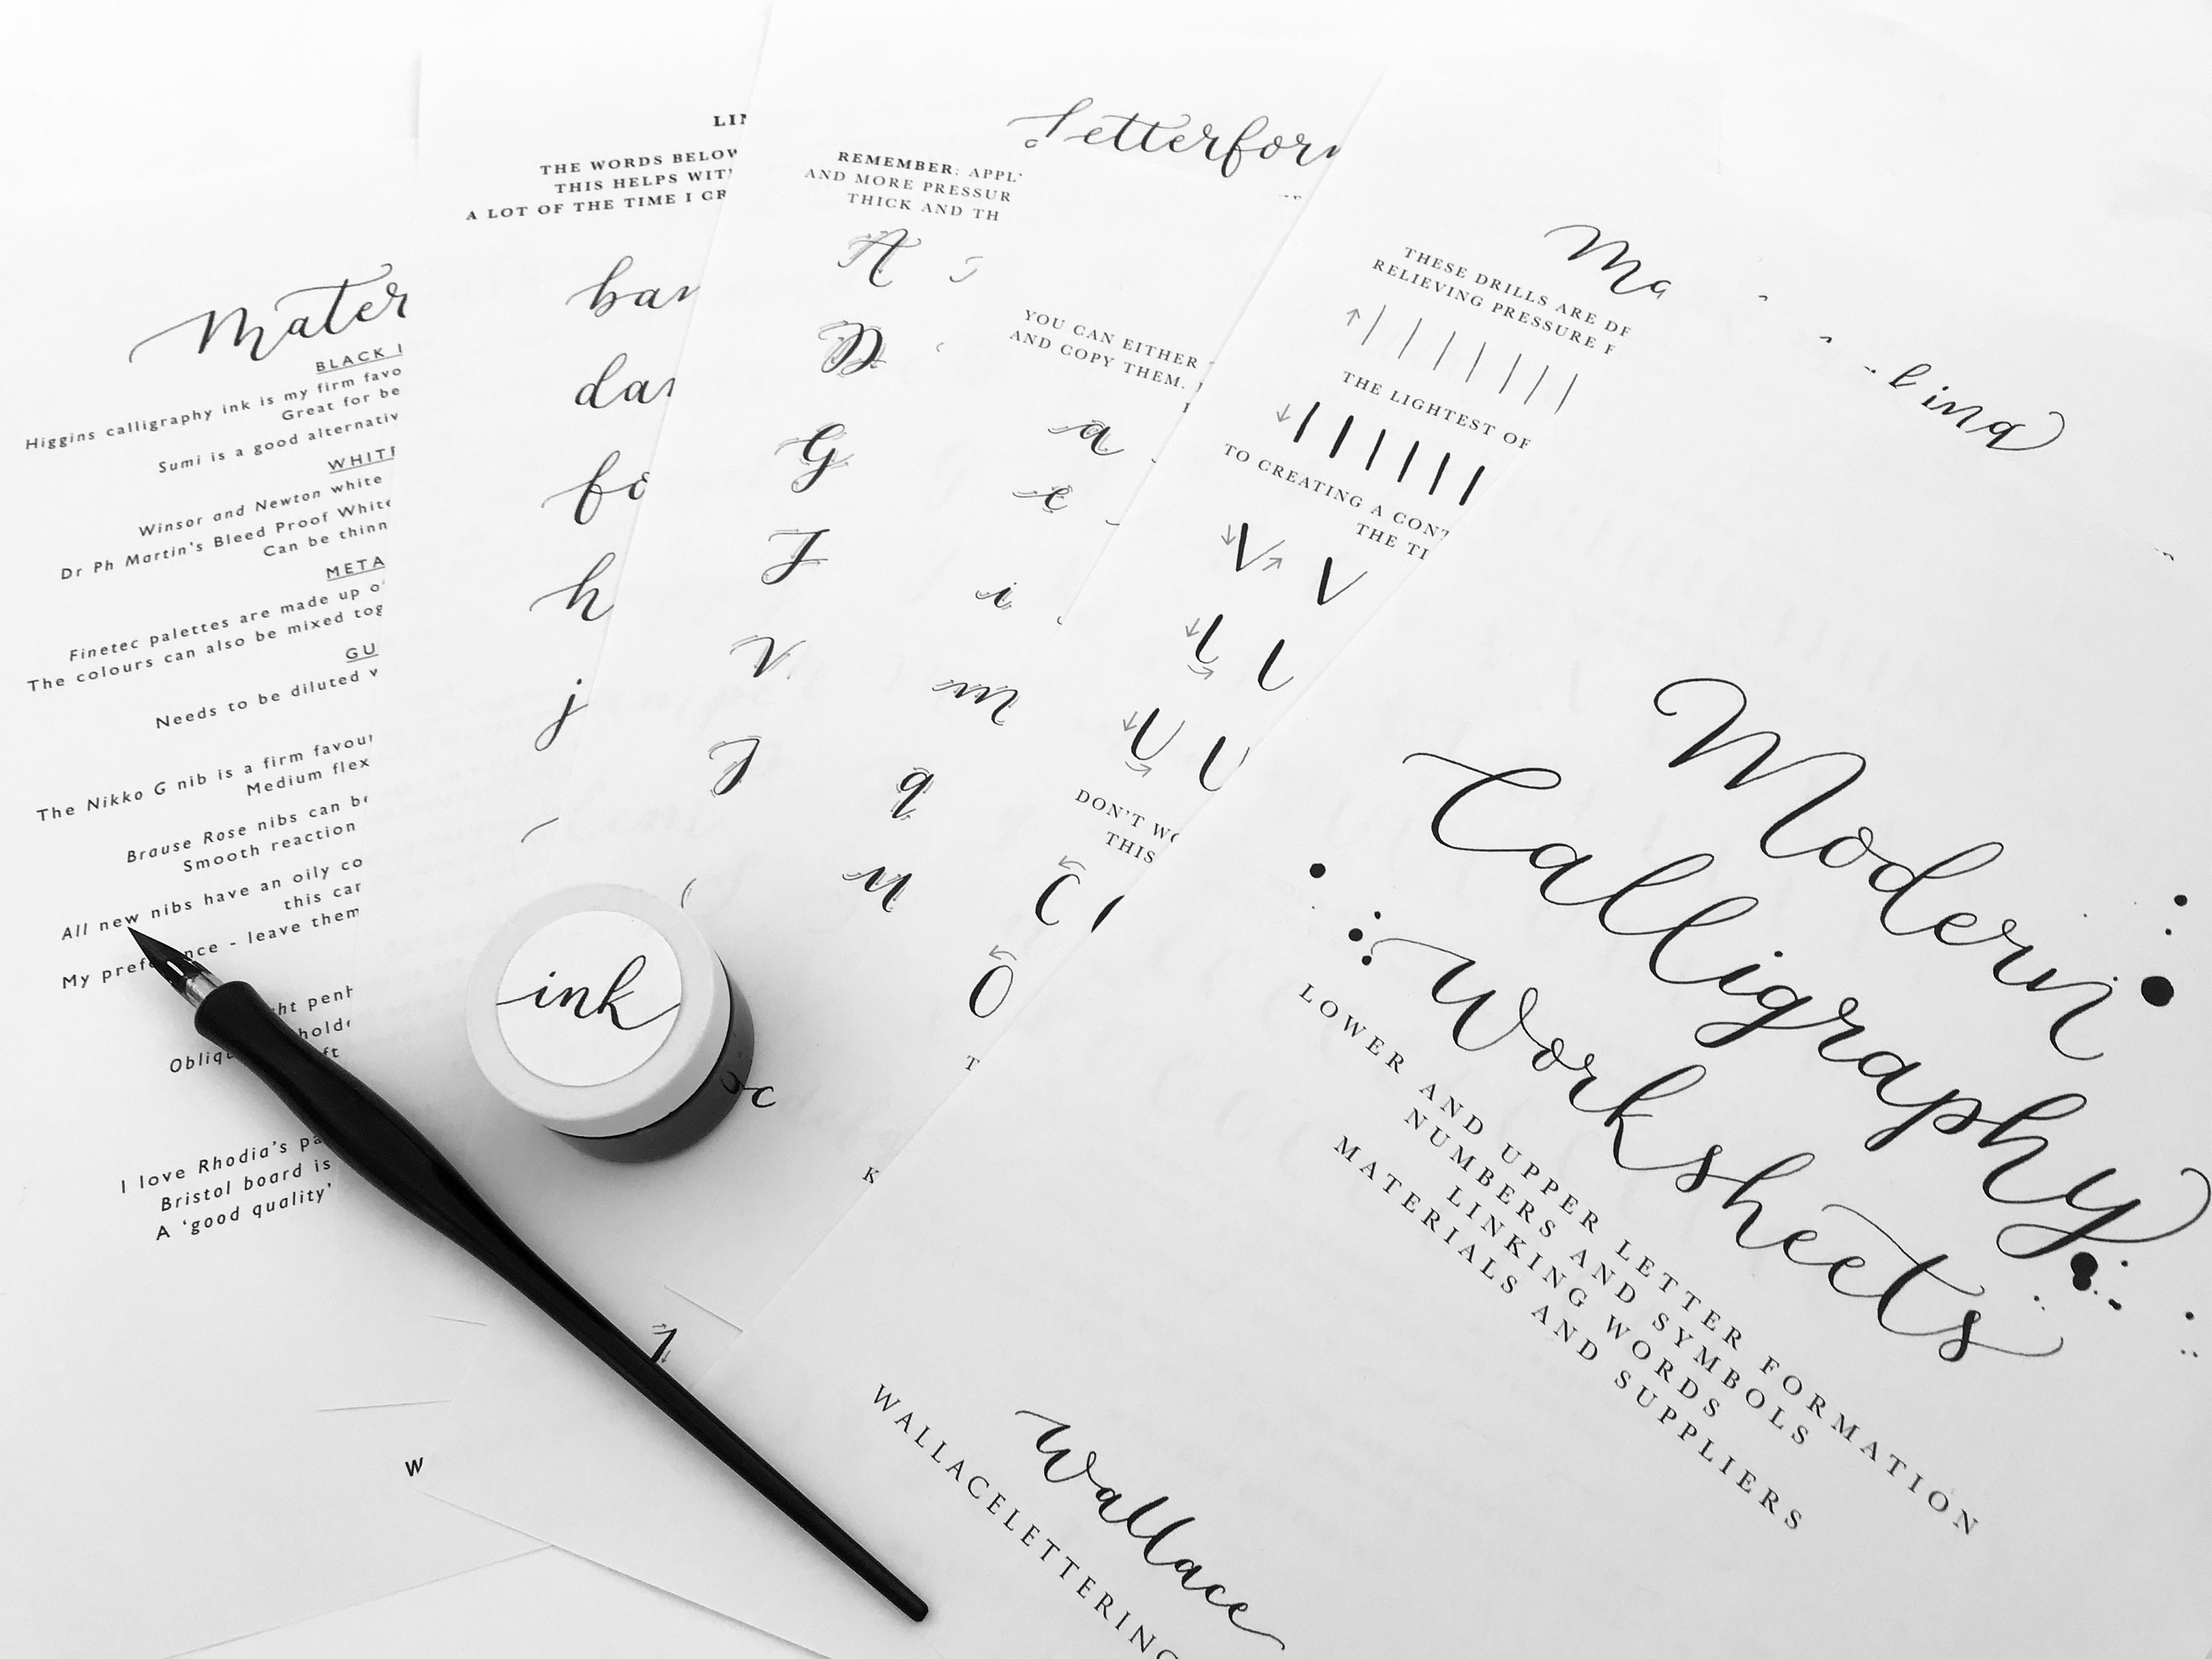 Mater
BLACK I
Higgins calligraphy ink is my firm favo
Great for be
Sumi is a good alternativ
WHITE
Winsor and Newton white
Dr Ph Martin's Bleed Proof White
Can be thinn
META
Finetec palettes are made up o
The colours can also be mixed tog
GU
Needs to be diluted
The Nikko G nib is a firm favour
Medium flex
Brause Rose nibs can be
Smooth reaction
All new nibs have an oily co
this can
My pref nce - leave them
ht penh
holde
Obliq ft
I love Rhodia's pa
Bristol board is
A 'good quality'
W
LIN
THE WORDS BELOW
THIS HELPS WIT
A LOT OF THE TIME I CR
ban
dan
fo
h
j
ink
Letterform
REMEMBER: APPL
AND MORE PRESSUR
THICK AND TH
A
D
G
J
YOU CAN EITHER
AND COPY THEM.
a
e
i
m
q
u
K
Ma
THESE DRILLS ARE DE
RELIEVING PRESSURE F
THE LIGHTEST OF
TO CREATING A CONT
THE TI
V V
U U
DON'T WO
THIS
C
O
T
Modern
Calligraphy
Worksheets
LOWER AND UPPER LETTER FORMATION
NUMBERS AND SYMBOLS
LINKING WORDS
MATERIALS AND SUPPLIERS
Wallace
WALLACELETTERING